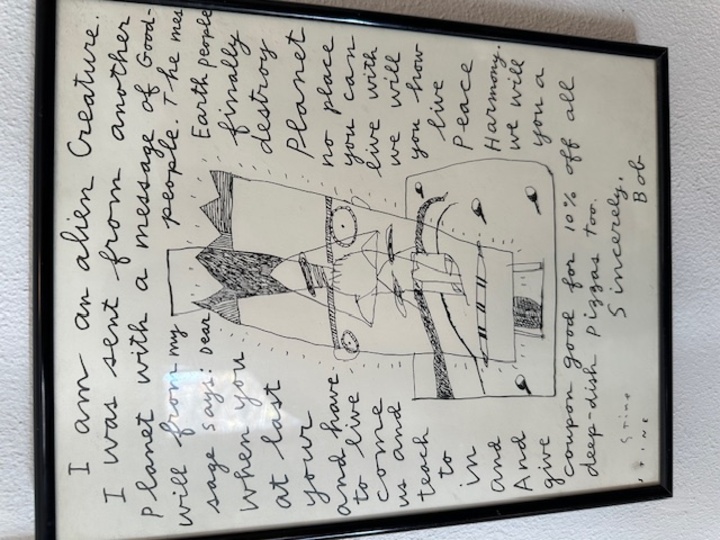 I am an alien Creature.
I was sent from another
Planet with a message of Good-
will from my people. The mes
sage says: Dear Earth people
when you finally
at last destroy
your Planet
and have no place
to live you can
come live with
us and we will
teach you how
to live
in Peace
and Harmony.
And we will
give you a
coupon good for 10% off all
deep-dish Pizzas too.
Sincerely,
Bob
Stine
STINE